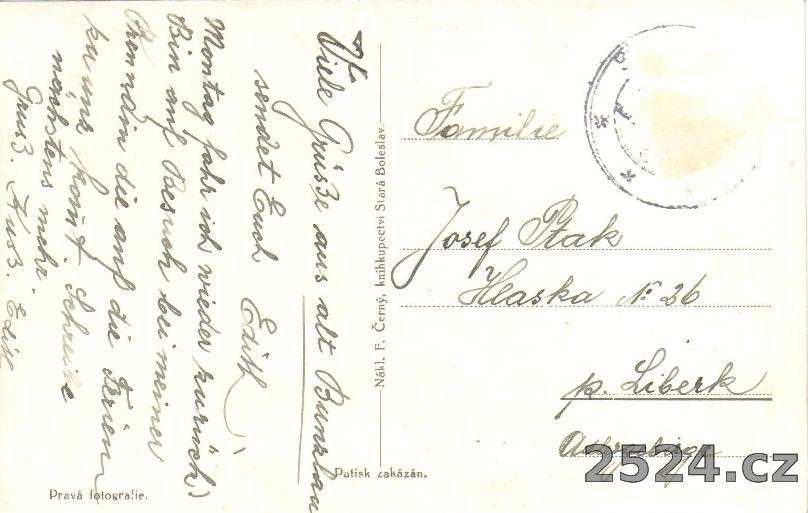 Viele Grüsse aus alt Bunzlau
sendet Euch Edith
Montag fahr ich wieder zurück!
Bin auf Besuch bei meiner
Freundin die auf die Ferien
zu uns kam. Schreibe
nächstens mehr.
Gruß. Kuß. Edith
Nákl. F. Černý, knihkupectví Stará Boleslav.
Familie
Josef Ptak
Hlaska № 26
p. Liberk
Patisk zakázán.
Pravá fotografie.
2524.cz